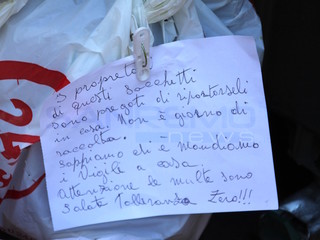 I propretari
di questi sacchetti
sono pregati di riportarseli
in casa. Non è giorno di
raccolta.
Sappiamo chi è mandiamo
i Vigili a casa.
attenzione le multe sono
Salate Tolleranza Zero!!!
news
24